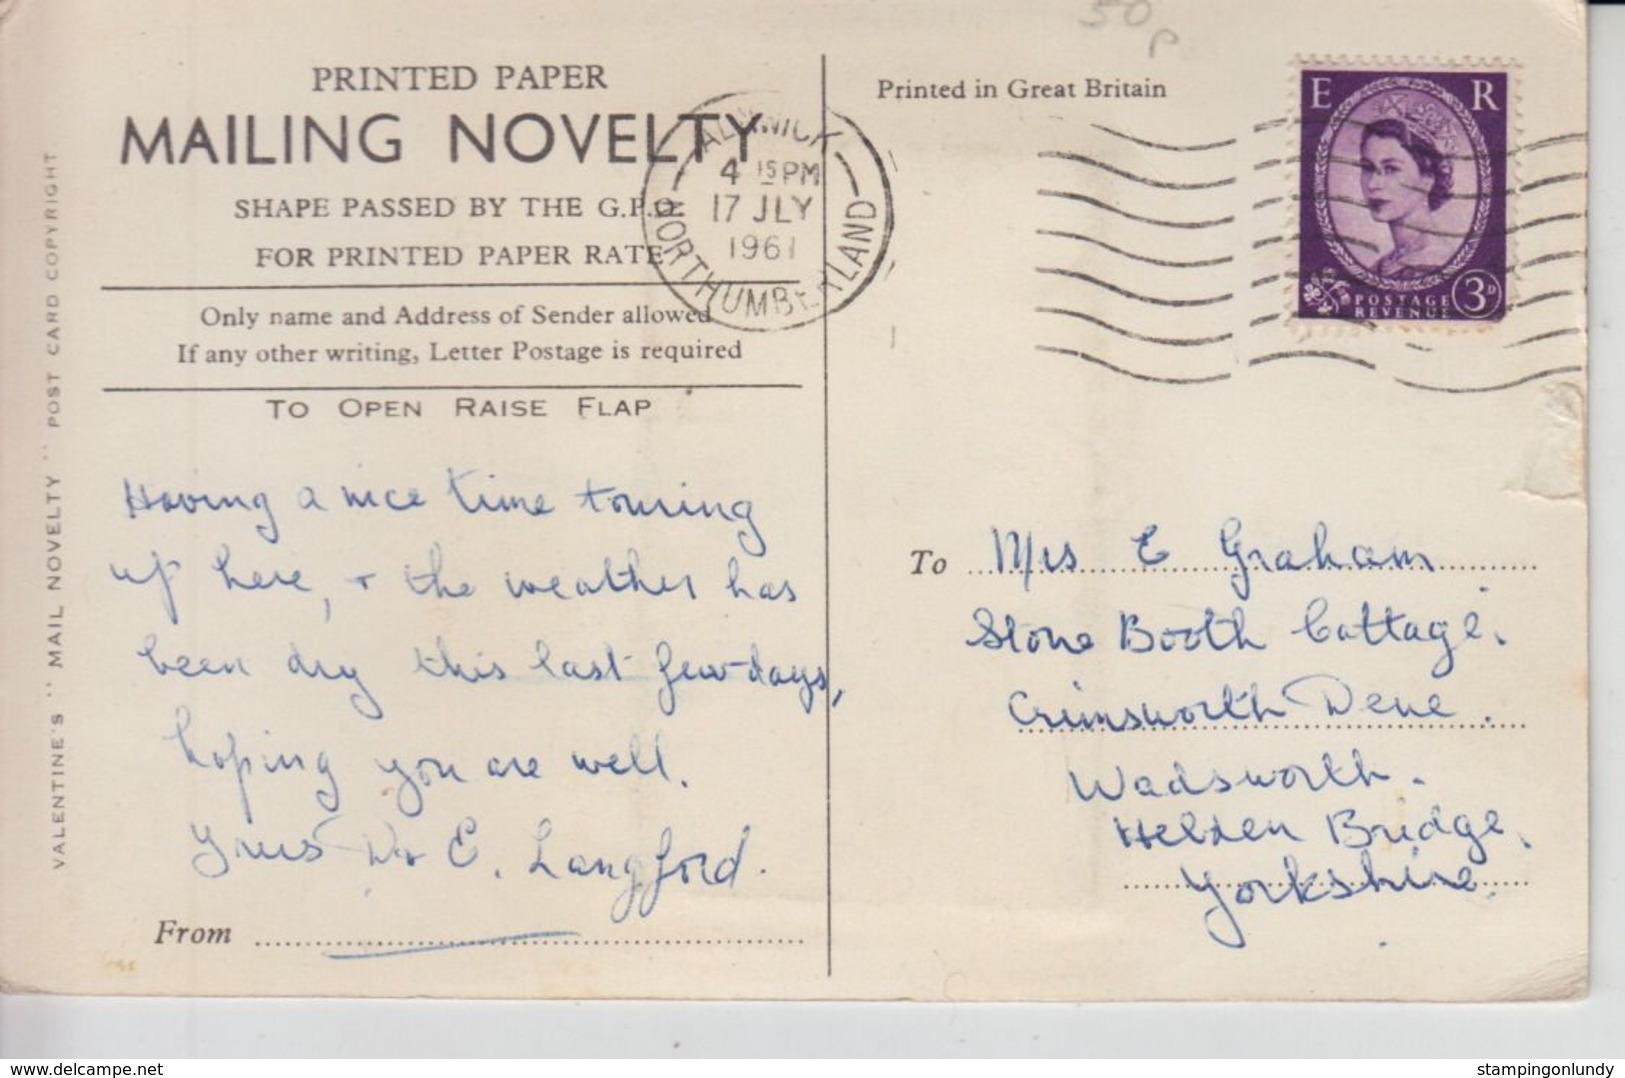 50p
PRINTED PAPER
MAILING NOVELTY
SHAPE PASSED BY THE G.P.O.
FOR PRINTED PAPER RATE
Only name and Address of Sender allowed
If any other writing, Letter Postage is required
TO OPEN RAISE FLAP
VALENTINE'S "MAIL NOVELTY" POST CARD COPYRIGHT
Having a nice time touring
up here, + the weather has
been dry this last few days,
hoping you are well.
Yours E. Langford.
From
ALNWICK
4 15 PM
17 JLY
1961
NORTHUMBERLAND
Printed in Great Britain
E R
POSTAGE
REVENUE
3D
To Mrs E Graham
Stone Booth Cottage.
Crimsworth Dene.
Wadsworth.
Hebden Bridge.
Yorkshire.
delcampe.net
stampingonlundy